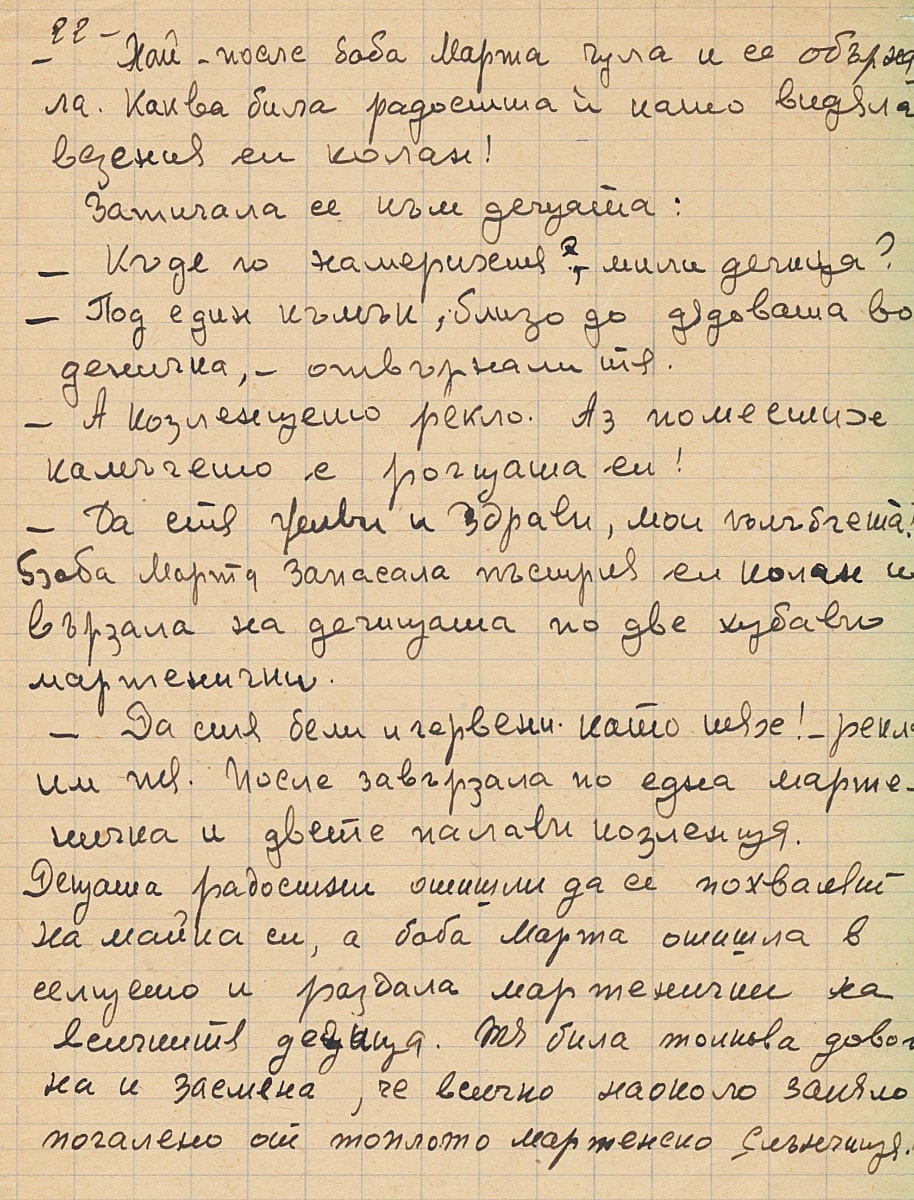 - 22 -
- Най-после баба Марта чула и се обърна
ла. Каква била радостта й като видяла
везения си колан!
Затичала се към децата:
- Къде го намерихтя, мили дечица?
- Под един камък, близо до дядовата во
деничка, - отвърнали тя.
- А козленцето рекло. Аз поместих
камъчето с рогцата си!
- Да стя живи и здрави, мои гълъбчета!
Баба Марта запасала пъстрия си колан и
вързала на дечицата по две хубави
мартенички.
- Да стя бели и червени като тях! - рекла
им тя. После завързала по една марте-
ничка и двете палави козленця.
Децата радостни отишли да се похвалят
на майка си, а баба Марта отишла в
селцето и раздала мартенички на
всичкитя дечица. Тя била толкова довол
на и засмена, че всичко наоколо запяло
погалено от топлото мартенско слънчиця.